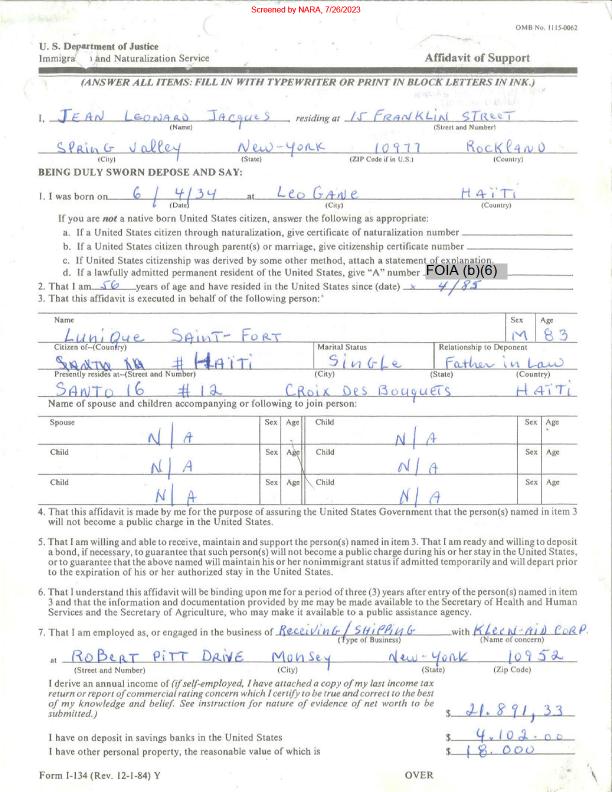 Screened by NARA, 7/26/2023
OMB No. 1115-0062
U. S. Department of Justice
Immigra and Naturalization Service Affidavit of Support
(ANSWER ALL ITEMS: FILL IN WITH TYPEWRITER OR PRINT IN BLOCK LETTERS IN INK.)
I, JEAN LEONARD JACQUES residing at 15 FRANKLIN STREET
(Name) (Street and Number)
SPRING Valley New-York 10977 ROCKLAND
(City) (State) (ZIP Code if in U.S.) (Country)
BEING DULY SWORN DEPOSE AND SAY:
1. I was born on 6/4/34 at LEOGANE HAÏTI
(Date) (City) (Country)
If you are not a native born United States citizen, answer the following as appropriate:
a. If a United States citizen through naturalization, give certificate of naturalization number
b. If a United States citizen through parent(s) or marriage, give citizenship certificate number
c. If United States citizenship was derived by some other method, attach a statement of explanation.
d. If a lawfully admitted permanent resident of the United States, give "A" number FOIA (b)(6)
2. That I am 56 years of age and have resided in the United States since (date) x 4/85
3. That this affidavit is executed in behalf of the following person:
Name Sex Age
Lunique SAINT-FORT M 83
Citizen of--(Country) Marital Status Relationship to Deponent
# HAÏTI Single Father in Law
Presently resides at--(Street and Number) (City) (State) (Country)
SANTO 16 #12 CROIX DES BOUQUETS HAÏTI
Name of spouse and children accompanying or following to join person:
Spouse Sex Age Child Sex Age
N/A N/A
Child Sex Age Child Sex Age
N/A N/A
Child Sex Age Child Sex Age
N/A N/A
4. That this affidavit is made by me for the purpose of assuring the United States Government that the person(s) named in item 3
will not become a public charge in the United States.
5. That I am willing and able to receive, maintain and support the person(s) named in item 3. That I am ready and willing to deposit
a bond, if necessary, to guarantee that such person(s) will not become a public charge during his or her stay in the United States,
or to guarantee that the above named will maintain his or her nonimmigrant status if admitted temporarily and will depart prior
to the expiration of his or her authorized stay in the United States.
6. That I understand this affidavit will be binding upon me for a period of three (3) years after entry of the person(s) named in item
3 and that the information and documentation provided by me may be made available to the Secretary of Health and Human
Services and the Secretary of Agriculture, who may make it available to a public assistance agency.
7. That I am employed as, or engaged in the business of Receiving/SHIPPING with KLEEN-AID CORP.
(Type of Business) (Name of concern)
at ROBERT PITT DRIVE Monsey New-York 10952
(Street and Number) (City) (State) (Zip Code)
I derive an annual income of (if self-employed, I have attached a copy of my last income tax
return or report of commercial rating concern which I certify to be true and correct to the best
of my knowledge and belief. See instruction for nature of evidence of net worth to be
submitted.) $ 21.891,33
I have on deposit in savings banks in the United States $ 4.102.00
I have other personal property, the reasonable value of which is $ 18.000
Form I-134 (Rev. 12-1-84) Y OVER